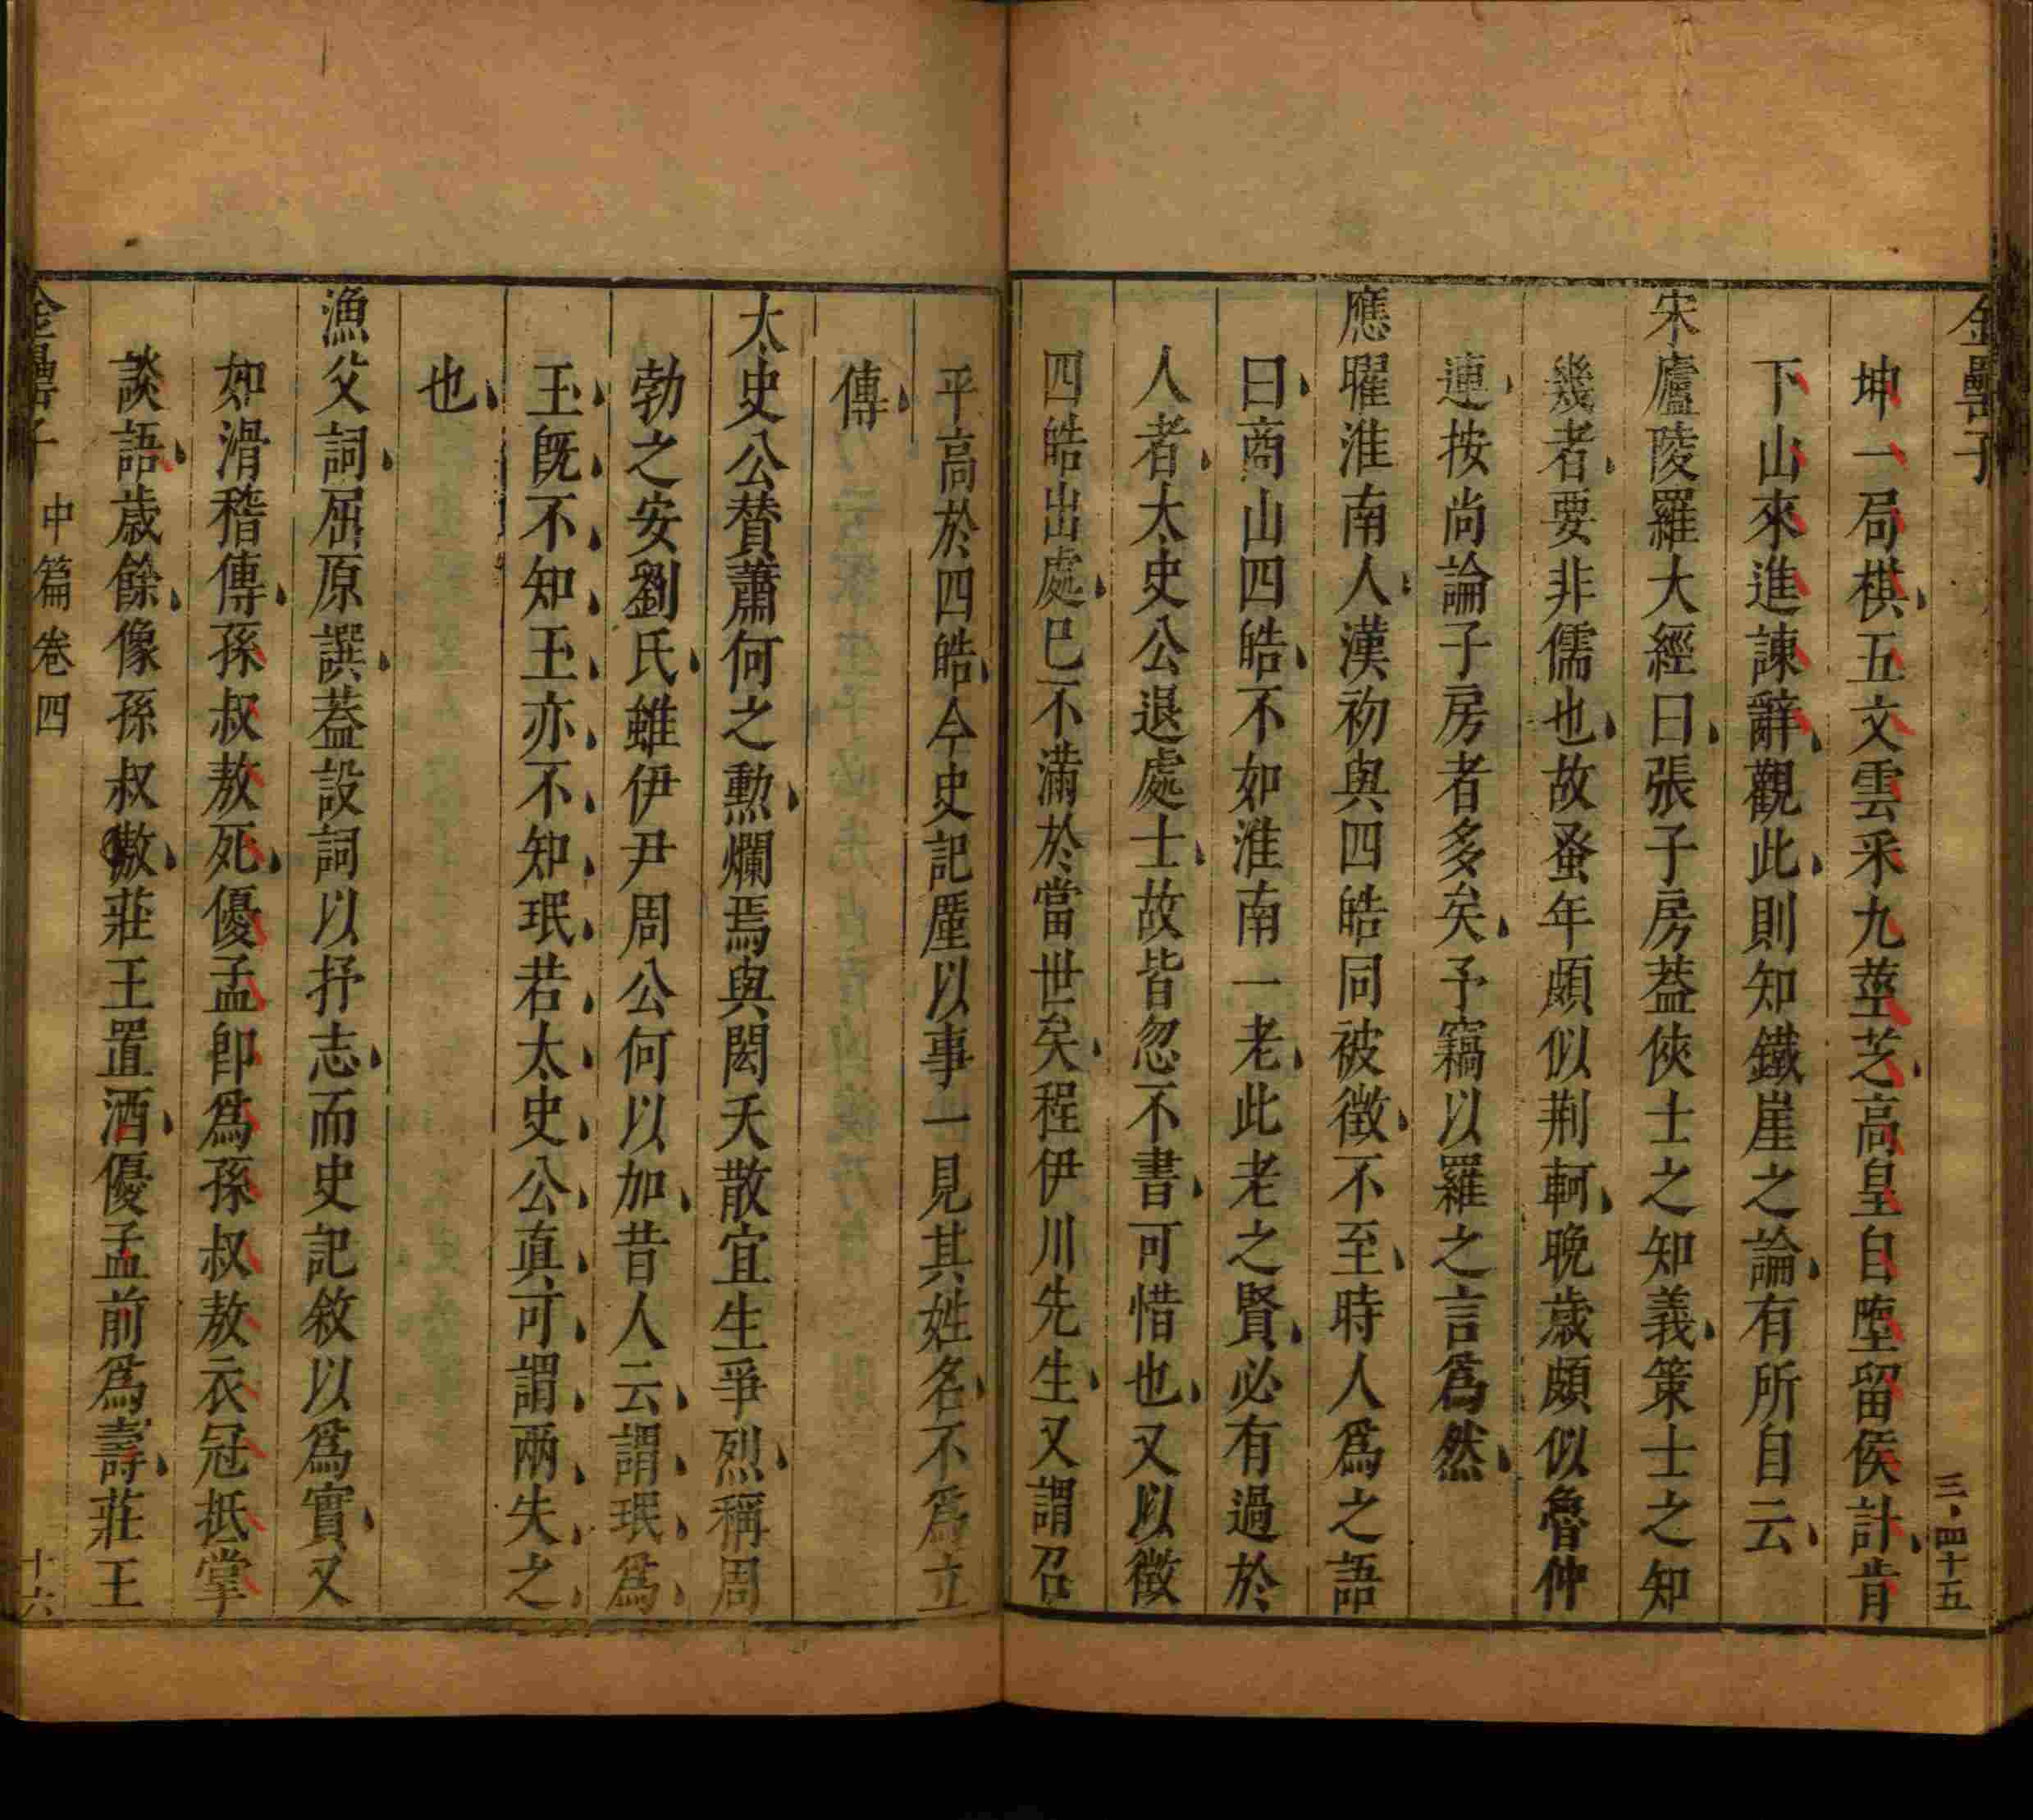 金罍子
三·四十五
坤一局棋五文雲采九莖芝高皇自墮留侯計肯
下山來進諫辭觀此則知鐵崖之論有所自云
宋廬陵羅大經曰張子房葢俠士之知義策士之知
幾者要非儒也故蚤年頗似荆軻晚歲頗似魯仲
連按尚論子房者多矣予竊以羅之言爲然
應曜淮南人漢初與四皓同被徵不至時人爲之語
曰商山四皓不如淮南一老此老之賢必有過於
人者太史公退處士故皆忽不書可惜也又以徵
四皓出處巳不滿於當世矣程伊川先生又謂召
平高於四皓今史記厪以事一見其姓名不爲立
傳
太史公賛蕭何之勲爛焉與閎夭散宜生爭烈稱周
勃之安劉氏雖伊尹周公何以加昔人云謂珉爲
玉旣不知玉亦不知珉若太史公真可謂兩失之
也
漁父詞屈原譔葢設詞以抒志而史記敘以爲實又
如滑稽傳孫叔敖死優孟卽爲孫叔敖衣冠抵掌
談語歲餘像孫叔敖莊王置酒優孟前爲壽莊王
金罍子 中篇卷四 十六